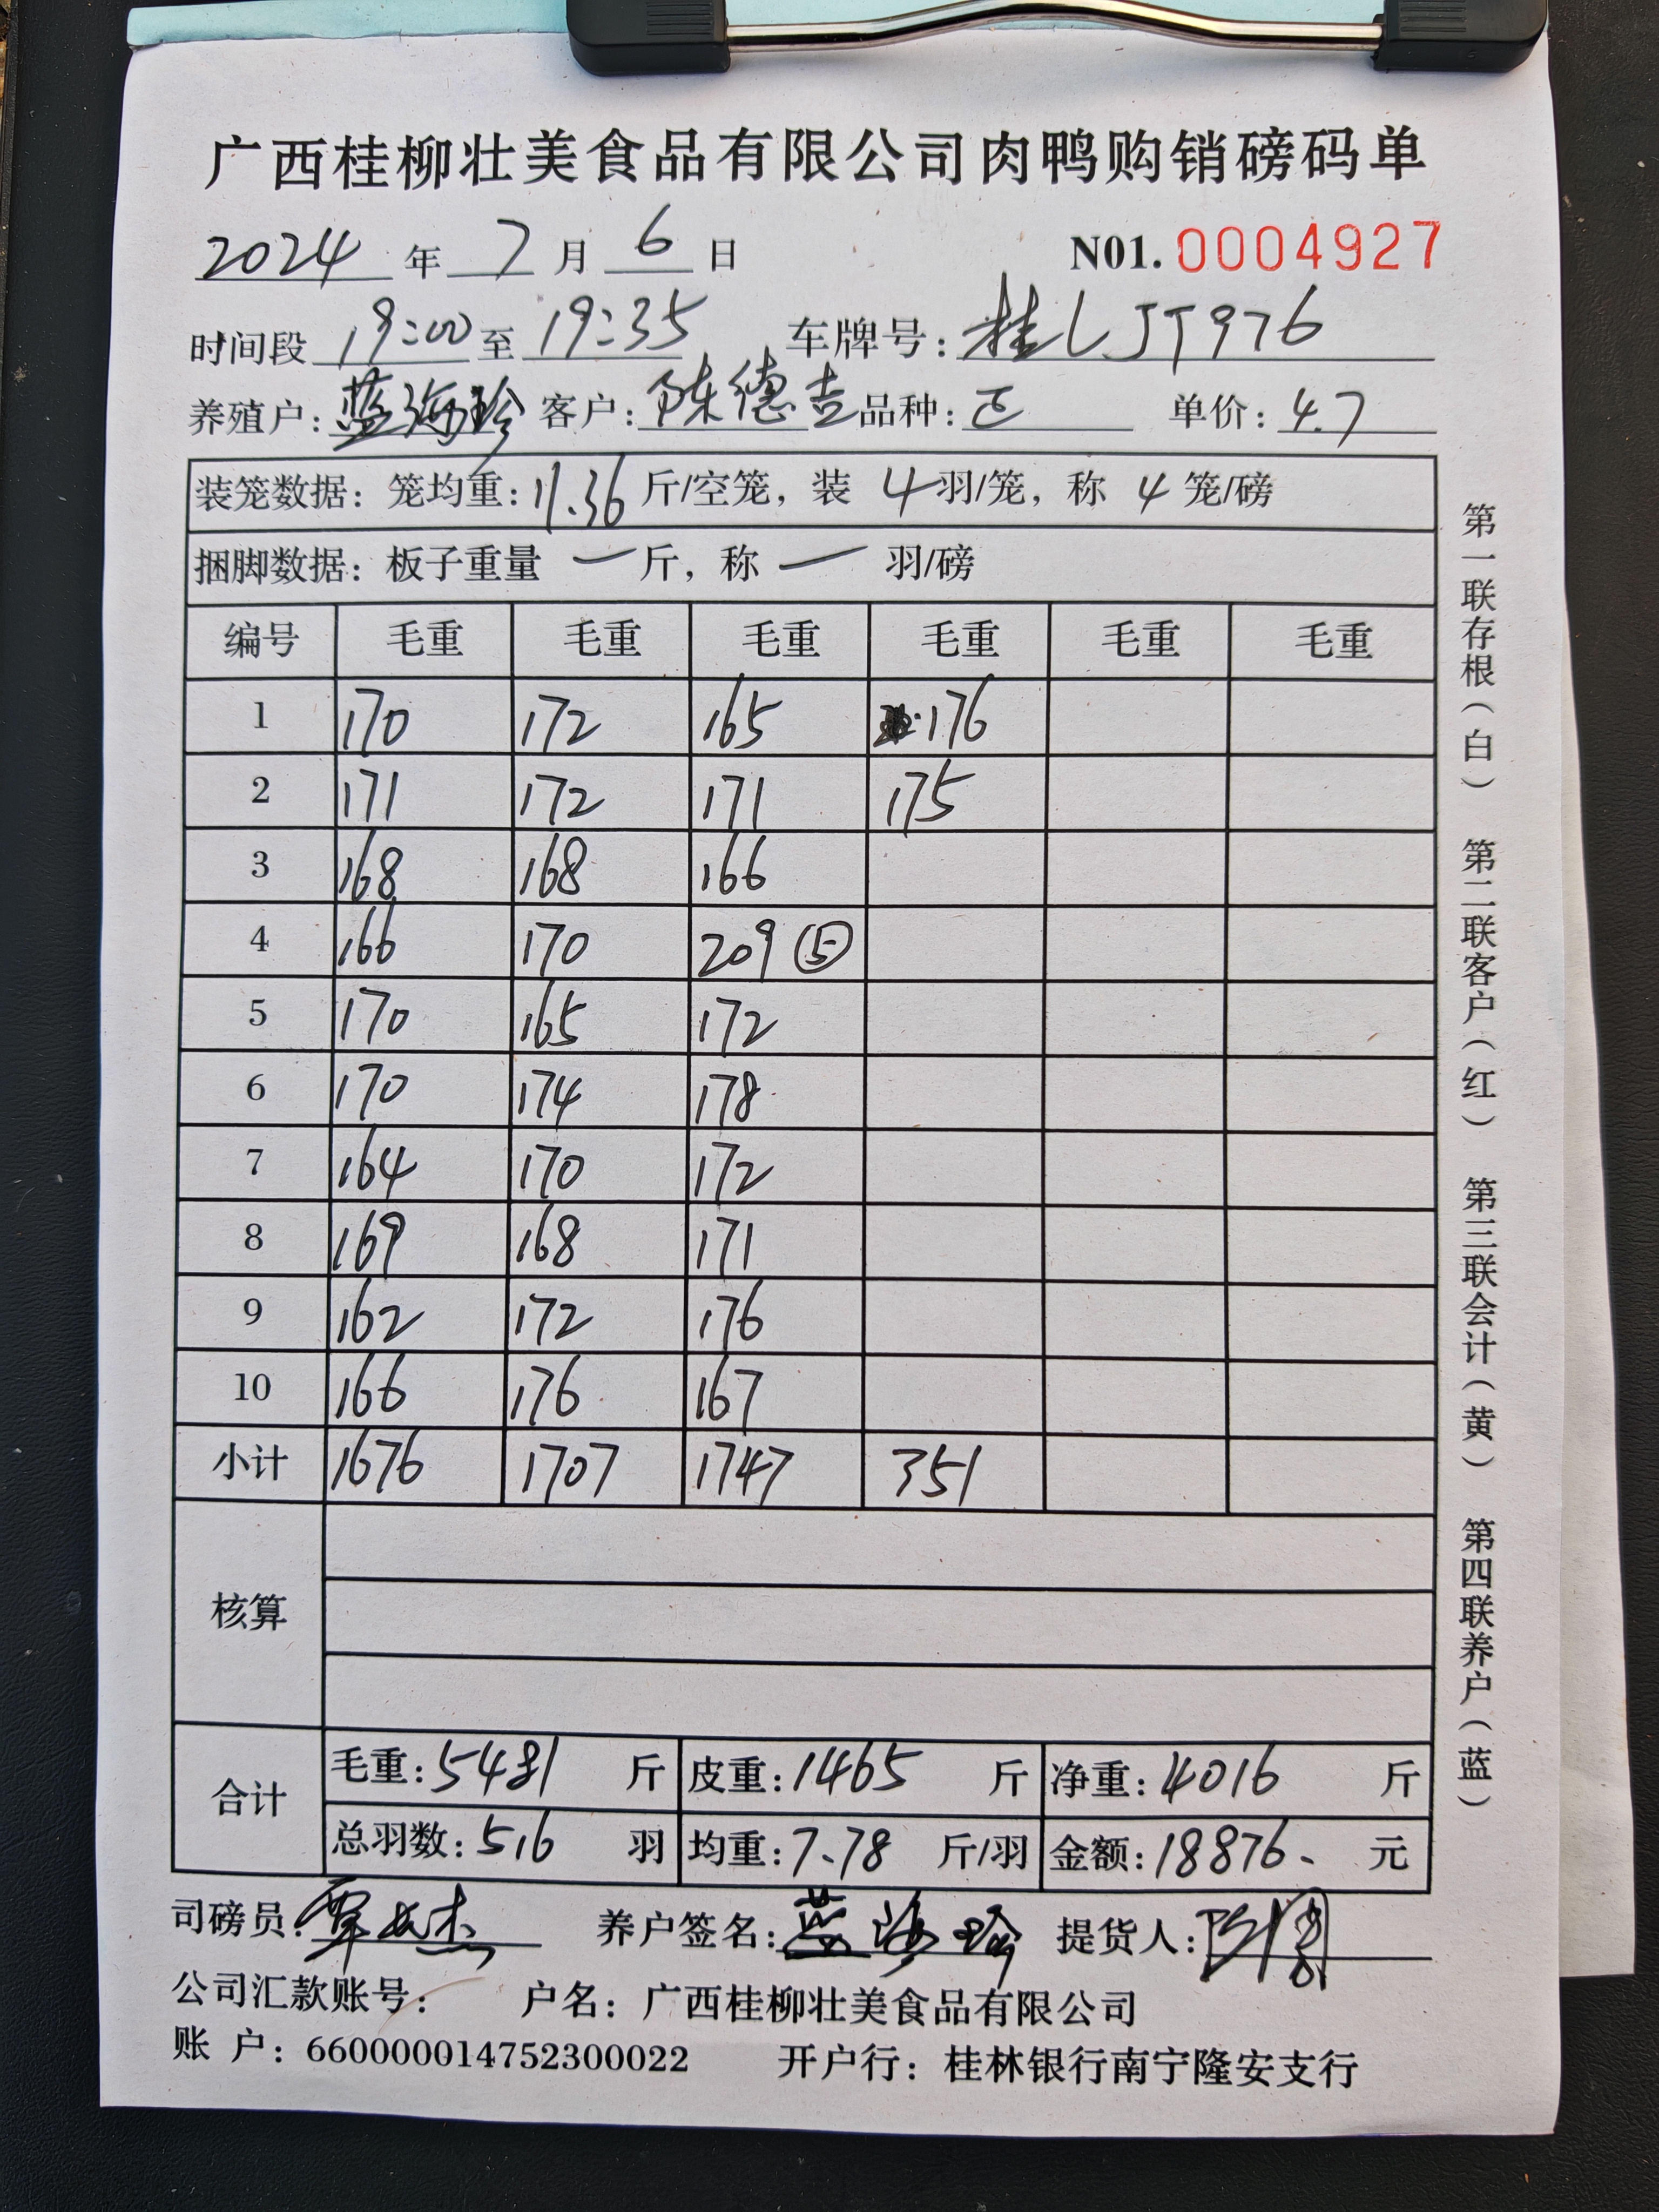 广西桂柳壮美食品有限公司肉鸭购销磅码单
2024 年 7 月 6 日 N01. 0004927
时间段 19:00 至 19:35 车牌号: 桂LJT976
养殖户: 蓝海珍 客户: 陈德吉 品种: 正 单价: 4.7
装笼数据: 笼均重: 11.36 斤/空笼, 装 4 羽/笼, 称 4 笼/磅
捆脚数据: 板子重量 一 斤, 称 一 羽/磅
编号 毛重 毛重 毛重 毛重 毛重 毛重
1 170 172 165 176
2 171 172 171 175
3 168 168 166
4 166 170 209 ⑤
5 170 165 172
6 170 174 178
7 164 170 172
8 169 168 171
9 162 172 176
10 166 176 167
小计 1676 1707 1747 351
核算
合计 毛重: 5481 斤 皮重: 1465 斤 净重: 4016 斤
总羽数: 516 羽 均重: 7.78 斤/羽 金额: 18876. 元
司磅员: 养户签名: 蓝海珍 提货人:
公司汇款账号: 户名: 广西桂柳壮美食品有限公司
账 户: 660000014752300022 开户行: 桂林银行南宁隆安支行
第一联存根(白) 第二联客户(红) 第三联会计(黄) 第四联养户(蓝)